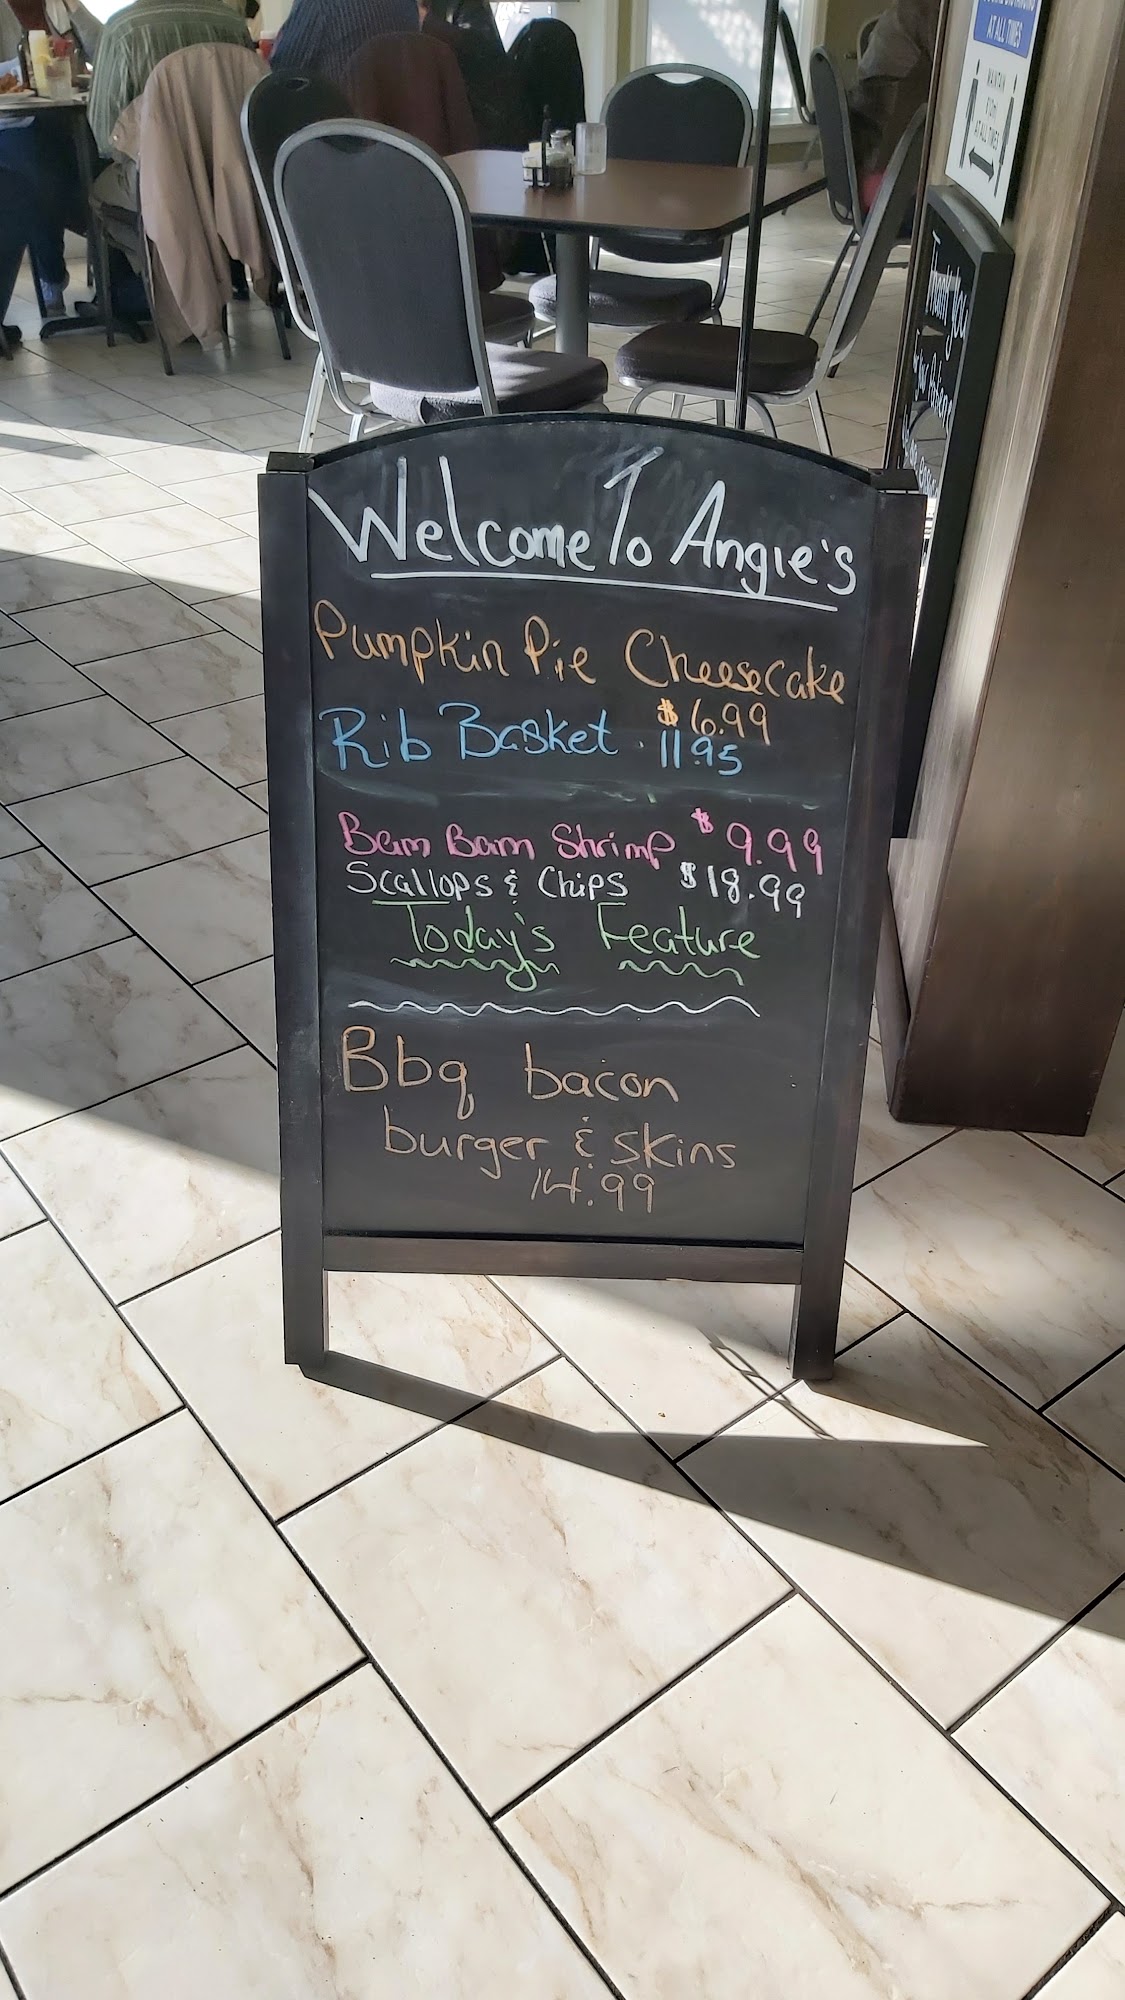 AT ALL TIMES
AT ALL TIMES
Thank you
Welcome To Angie's
Pumpkin Pie Cheesecake
$6.99
Rib Basket . 11.95
Bam Bam Shrimp $9.99
Scallops & Chips $18.99
Today's Feature
Bbq bacon
burger & skins
14.99